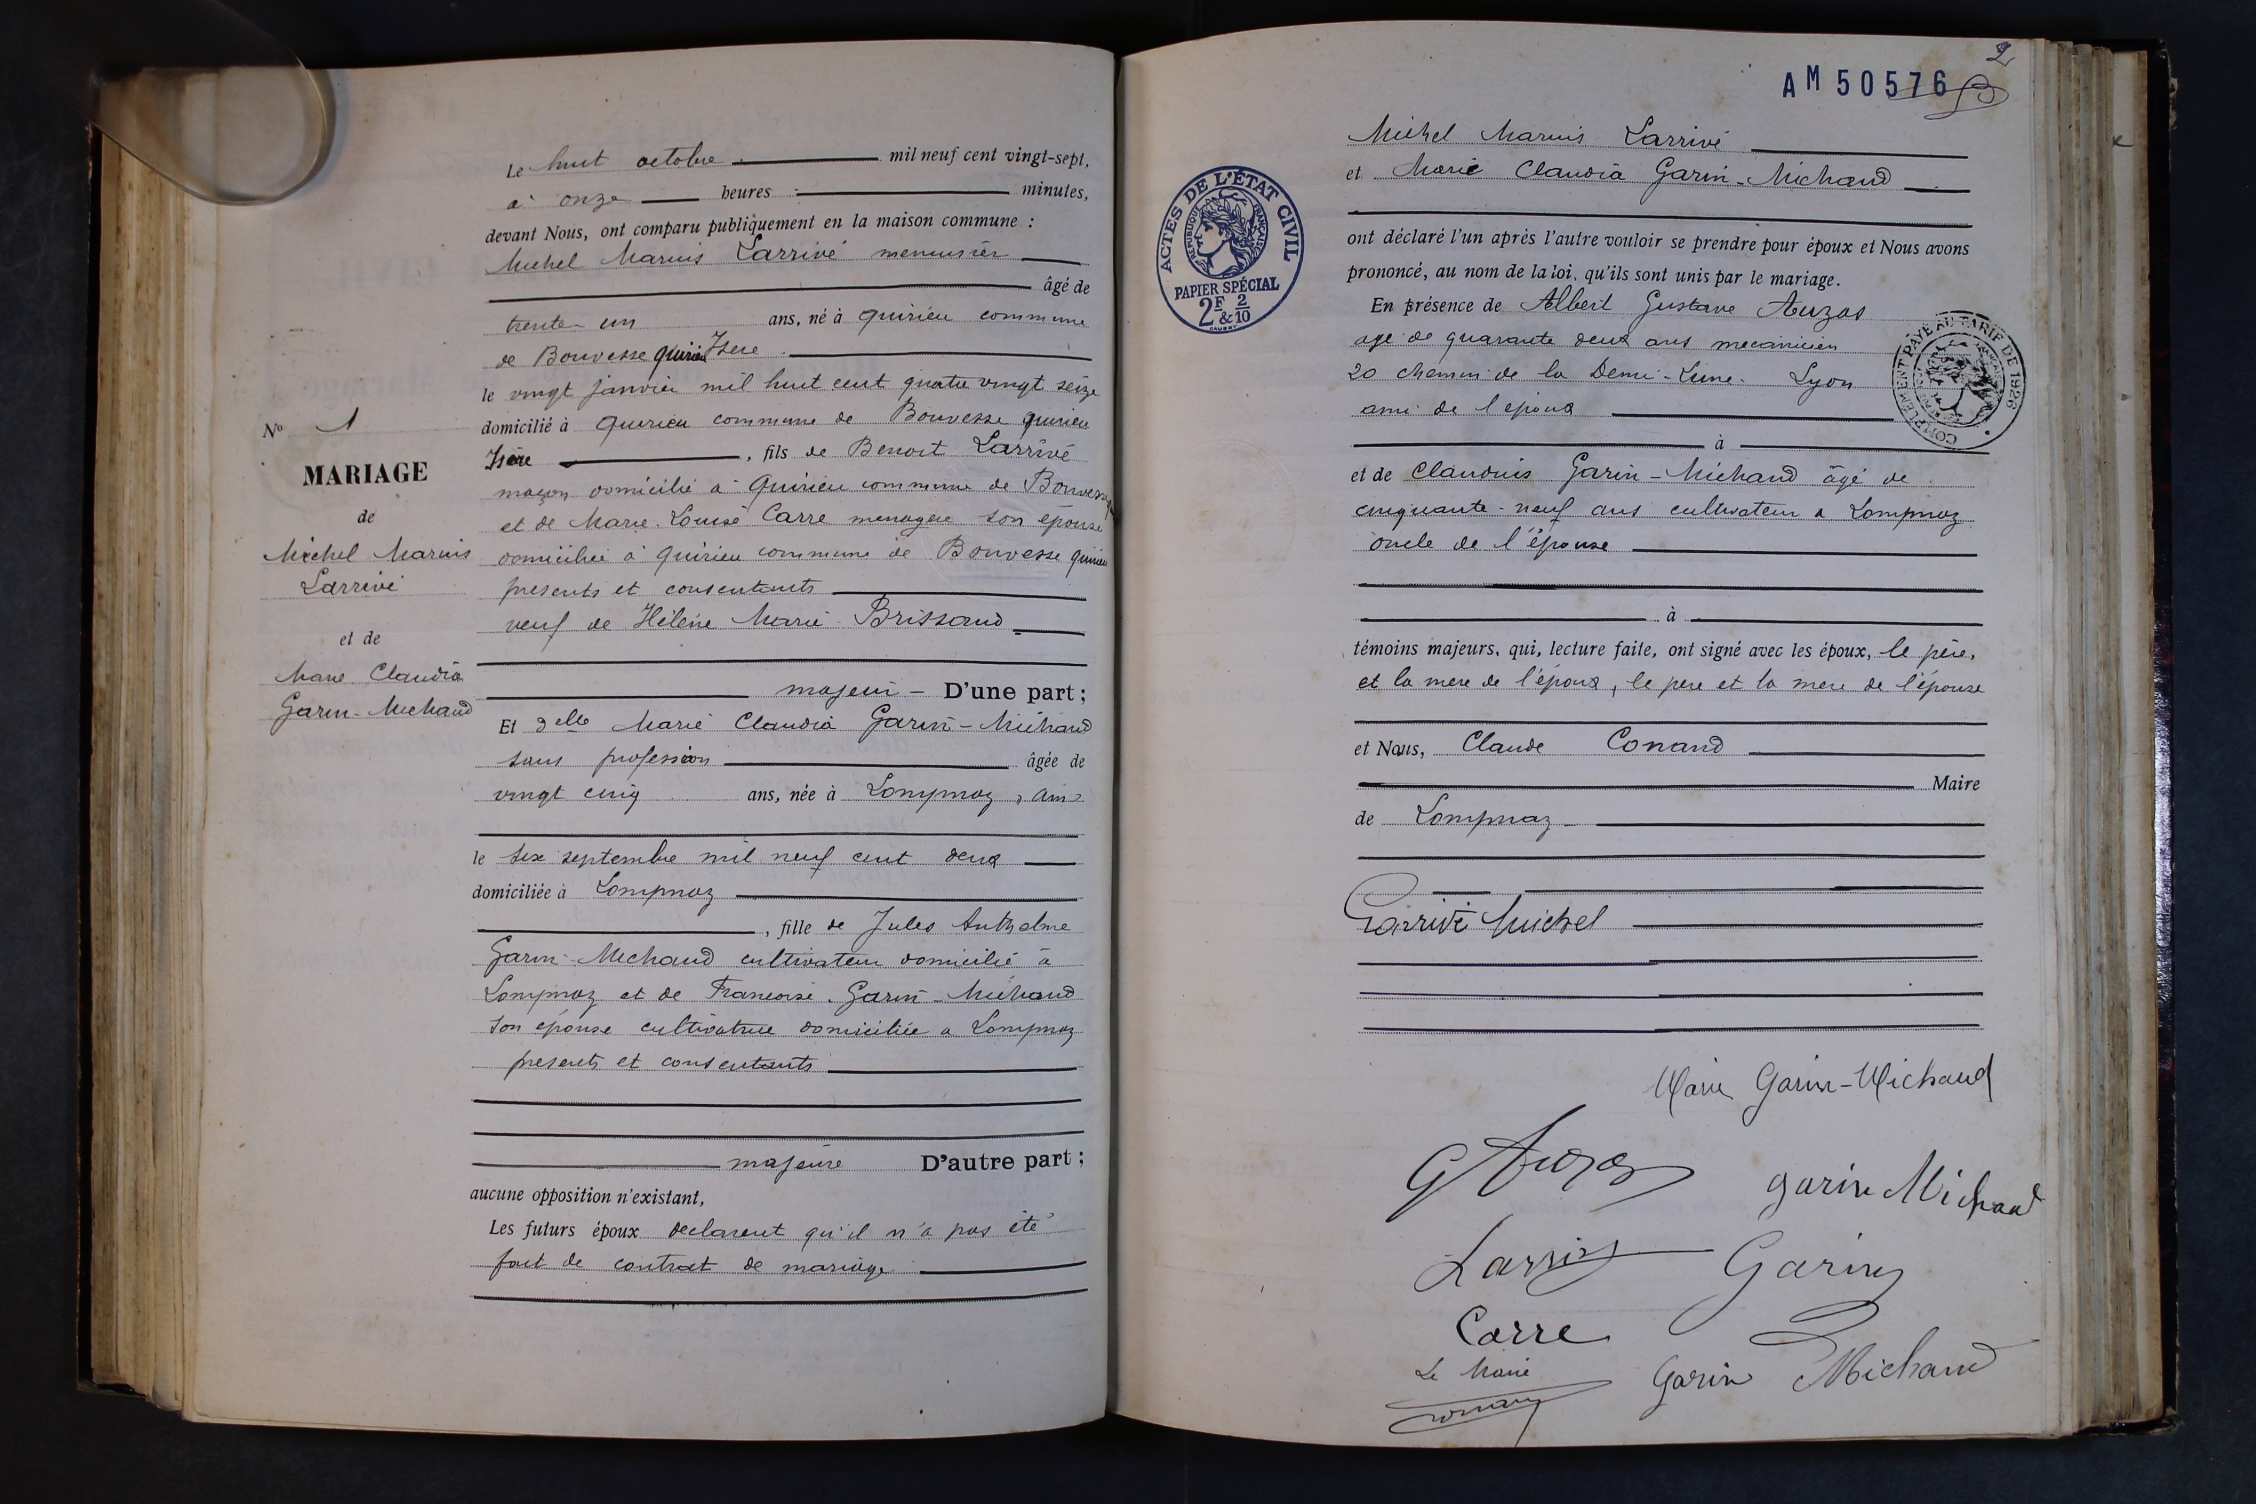 Le huit octobre mil neuf cent vingt-sept,
à onze heures minutes,
devant Nous, ont comparu publiquement en la maison commune :
Michel Marius Larrivé menuisier
âgé de
trente-un ans, né à Quirieu commune
de Bouvesse Quirieu Isère
le vingt janvier mil huit cent quatre vingt seize
domicilié à Quirieu commune de Bouvesse Quirieu
Isère , fils de Benoit Larrivé
maçon domicilié à Quirieu commune de Bouvesse
et de Marie Louise Carre menagère son épouse
domiciliée à Quirieu commune de Bouvesse Quirieu
presents et consentants
veuf de Hélène Marie Brissaud
majeur - D'une part ;
Et Delle Marie Claudia Garin-Michaud
sans profession âgée de
vingt cinq ans, née à Lompnaz, Ain
le six septembre mil neuf cent deux
domiciliée à Lompnaz
, fille de Jules Anthelme
Garin-Michaud cultivateur domicilié à
Lompnaz et de Francoise Garin-Michaud
son épouse cultivatrice domiciliée a Lompnaz
presents et consentants
majeure D'autre part ;
aucune opposition n'existant,
Les futurs époux declarent qu'il n'a pas été
fait de contrat de mariage
No 1
MARIAGE
de
Michel Marius
Larrivé
et de
Marie Claudia
Garin-Michaud
2
AM 50576
Michel Marius Larrivé
et Marie Claudia Garin-Michaud
ont déclaré l'un après l'autre vouloir se prendre pour époux et Nous avons
prononcé, au nom de la loi, qu'ils sont unis par le mariage.
En présence de Albert Gustave Auzas
age de quarante deux ans mecanicien
20 chemin de la Demi-Lune. Lyon
ami de l'epoux
à
et de Claudius Garin-Michaud âgé de
cinquante-neuf ans cultivateur a Lompnaz
oncle de l'épouse
à
témoins majeurs, qui, lecture faite, ont signé avec les époux, le père,
et la mere de l'époux, le pere et la mere de l'épouse
et Nous, Claude Conand
Maire
de Lompnaz
Larrivé Michel
Marie Garin-Michaud
G Auzas
garin Michaud
Larrivé
Garin
Carre
Le Maire
Garin Michaud
Conand
ACTES DE L'ÉTAT CIVIL
RÉPUBLIQUE FRANÇAISE
PAPIER SPÉCIAL
2F & 2/10
COMPLEMENT PAYÉ AU TARIF DE 1926